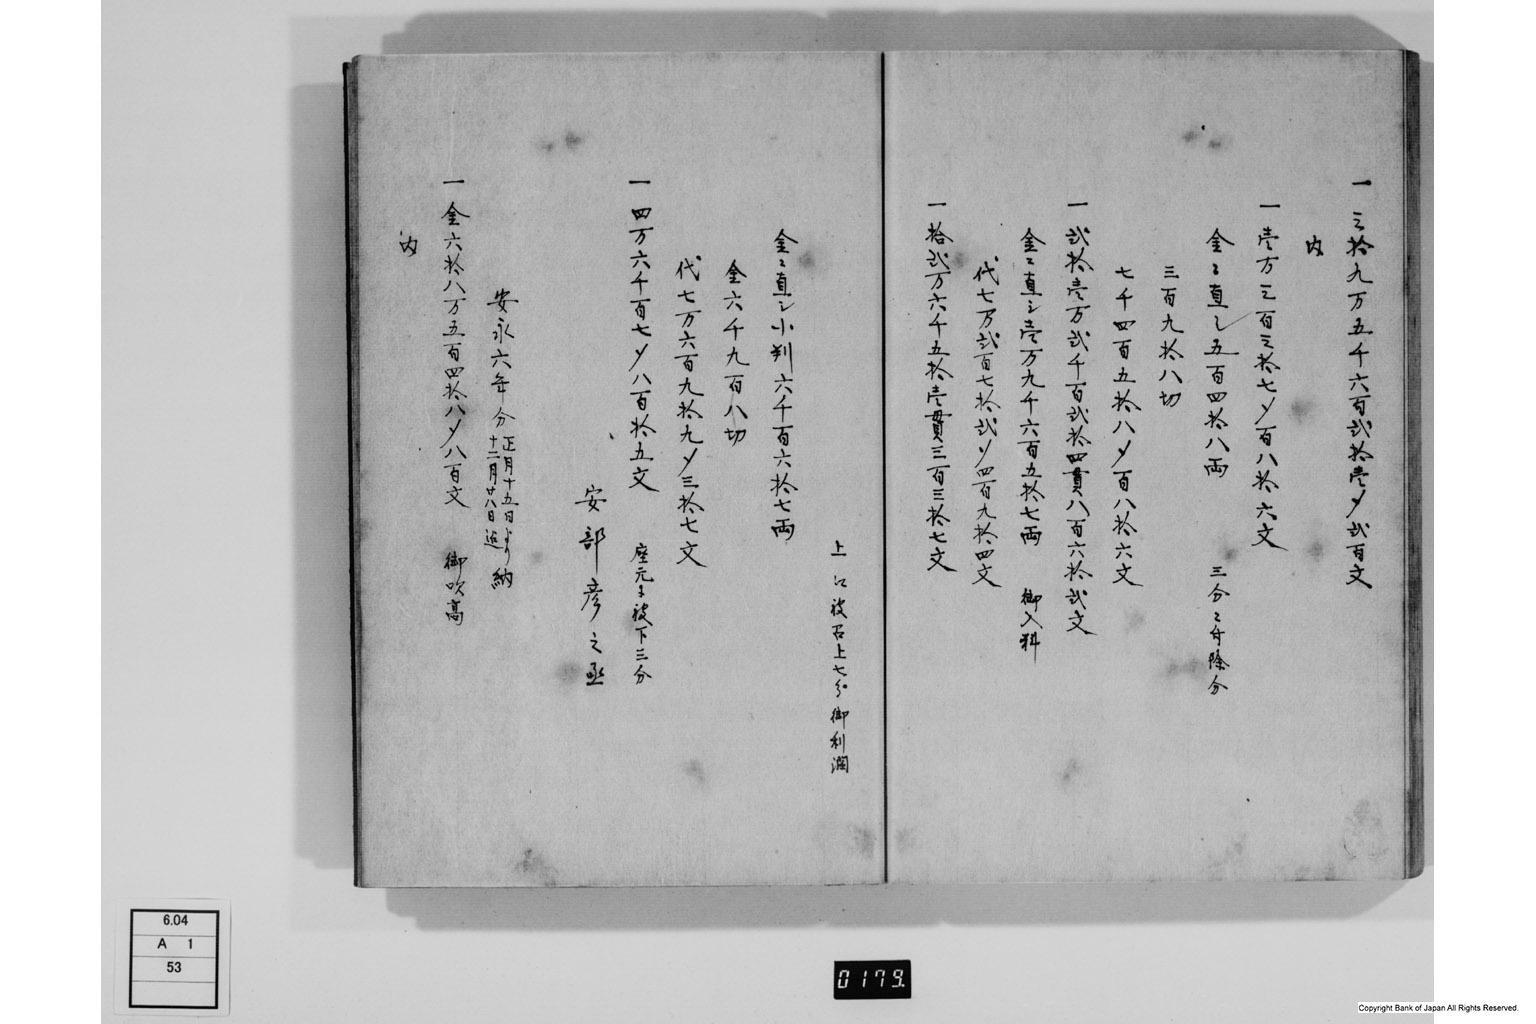 一 三拾九万五千六百弐拾壱〆弐百文
内
一 壱万三百三拾七〆百八拾六文
金ニ直シ五百四拾八両 三分ニ付除分
三百九拾八切
七千四百五拾八〆百八拾六文
一 弐拾壱万弐千百弐拾四貫八百六拾弐文
金ニ直シ壱万九千六百五拾七両 御入料
代七万弐百七拾弐〆四百九拾四文
一 拾弐万六千五拾壱貫三百三拾七文
上江被召上七分御利潤
金ニ直シ小判六千百六拾七両
金六千九百八切
代七万六百九拾九〆三拾七文
一 四万六千百七〆八百拾五文 座元江被下三分
安部彦之丞
安永六年分 正月十五日より 十二月廿八日迄 納
一 金六拾八万五百四拾八〆八百文 御吹高
内
6.04
A 1
53
0179
Copyright Bank of Japan All Rights Reserved.